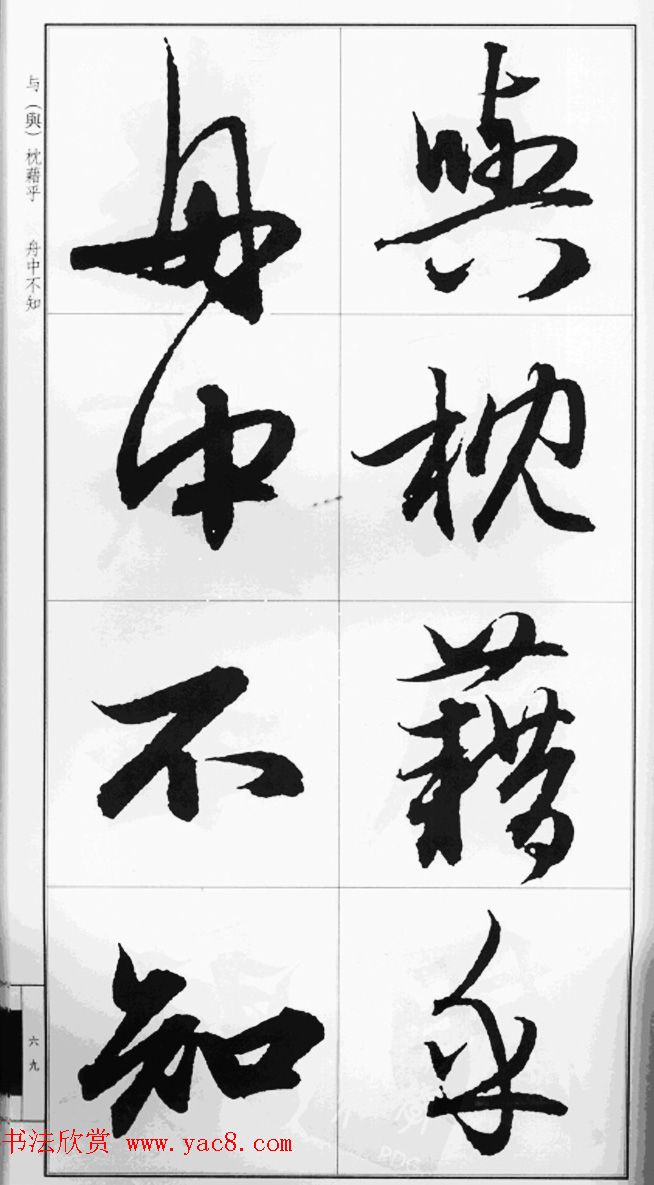 與枕藉乎
舟中不知
与(與)枕藉乎 舟中不知
六九
书法欣赏 www.yac8.com